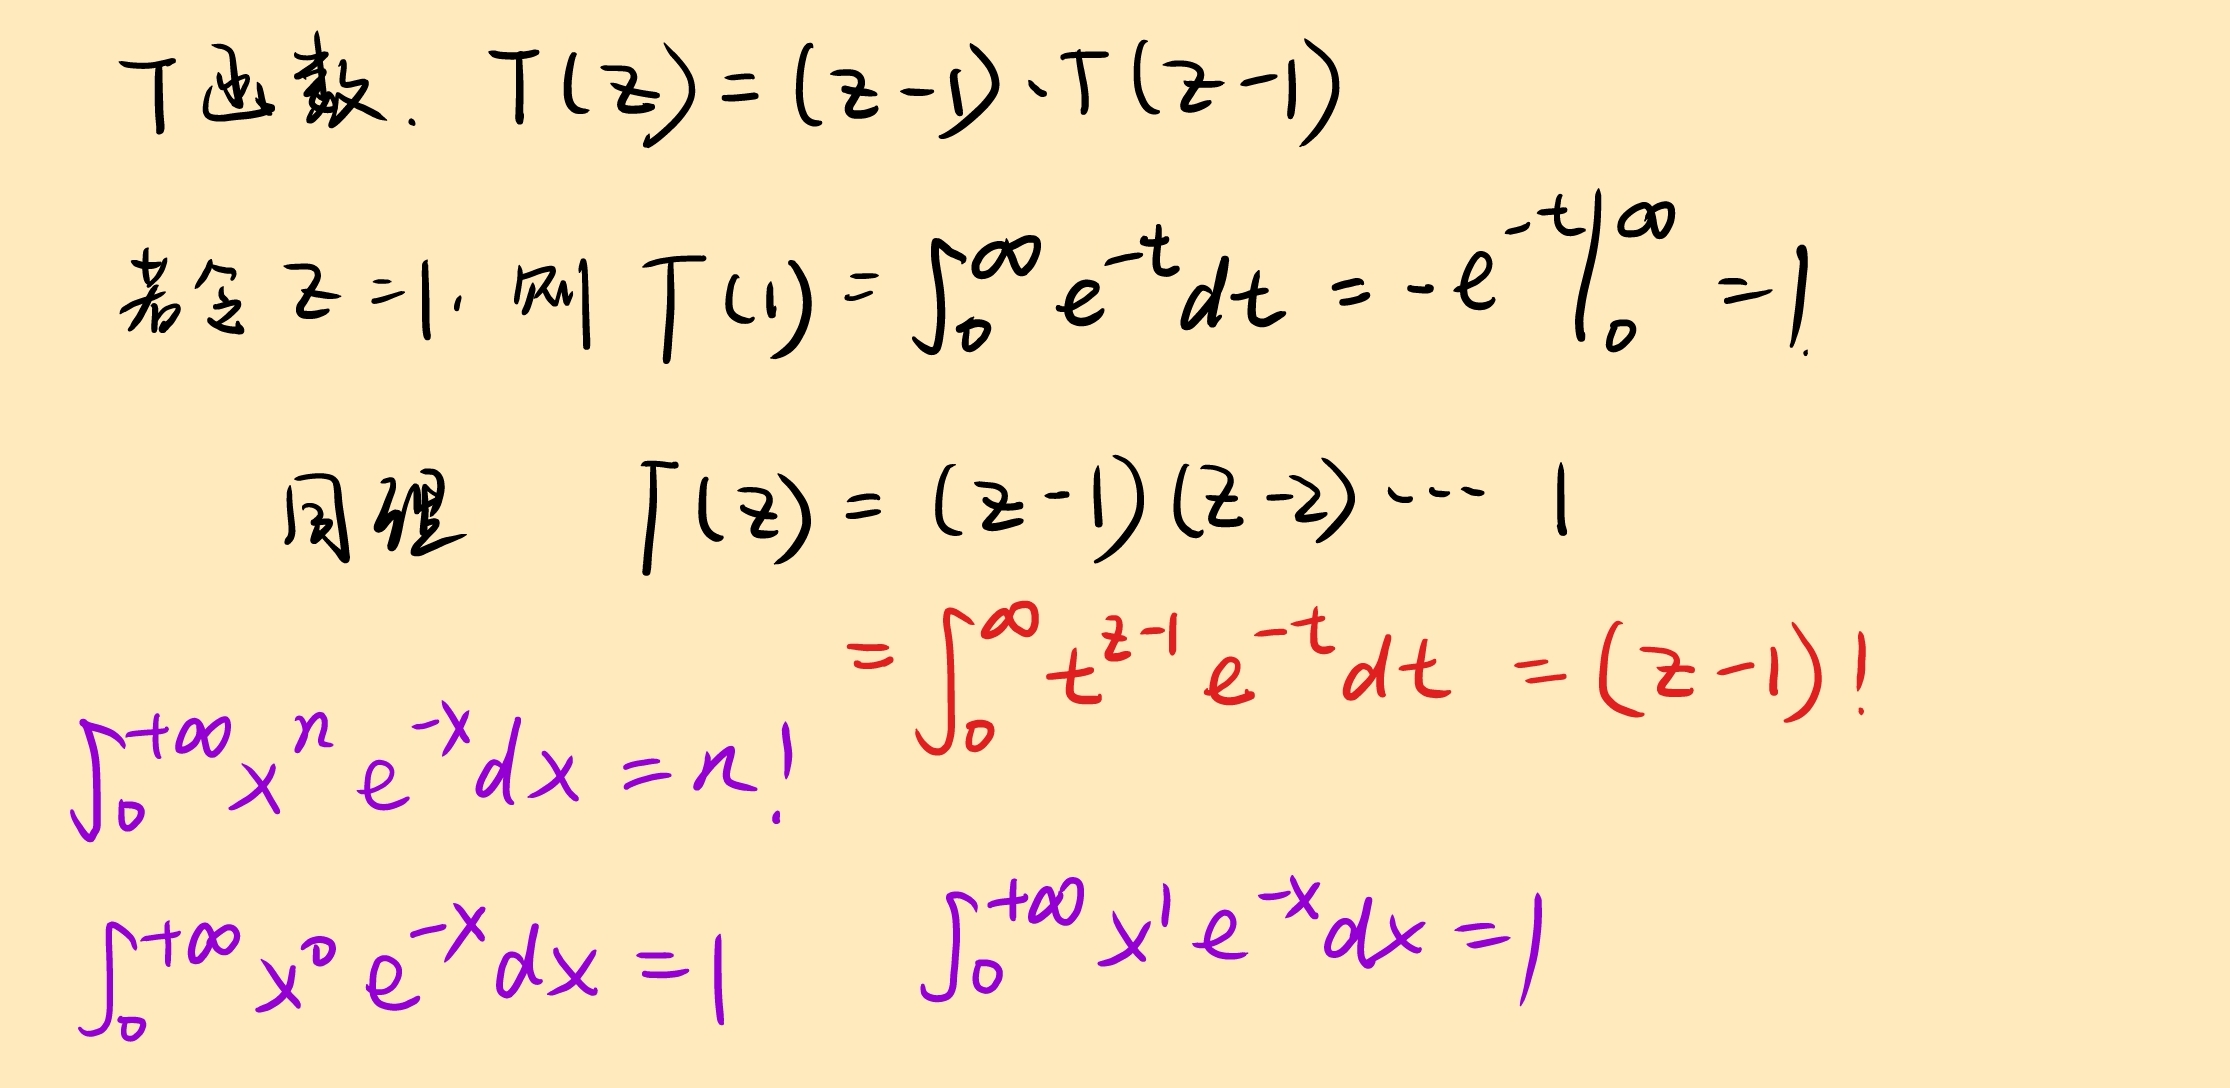 T函数. T(z)=(z-1)·T(z-1)
若令 z=1. 则 T(1)=∫₀^∞ e^{-t}dt = -e^{-t}|₀^∞ =1.
同理 T(z)=(z-1)(z-2)··· 1
=∫₀^∞ t^{z-1} e^{-t}dt =(z-1)!
∫₀^{+∞} x^n e^{-x}dx=n!
∫₀^{+∞} x^0 e^{-x}dx=1 ∫₀^{+∞} x^1 e^{-x}dx=1